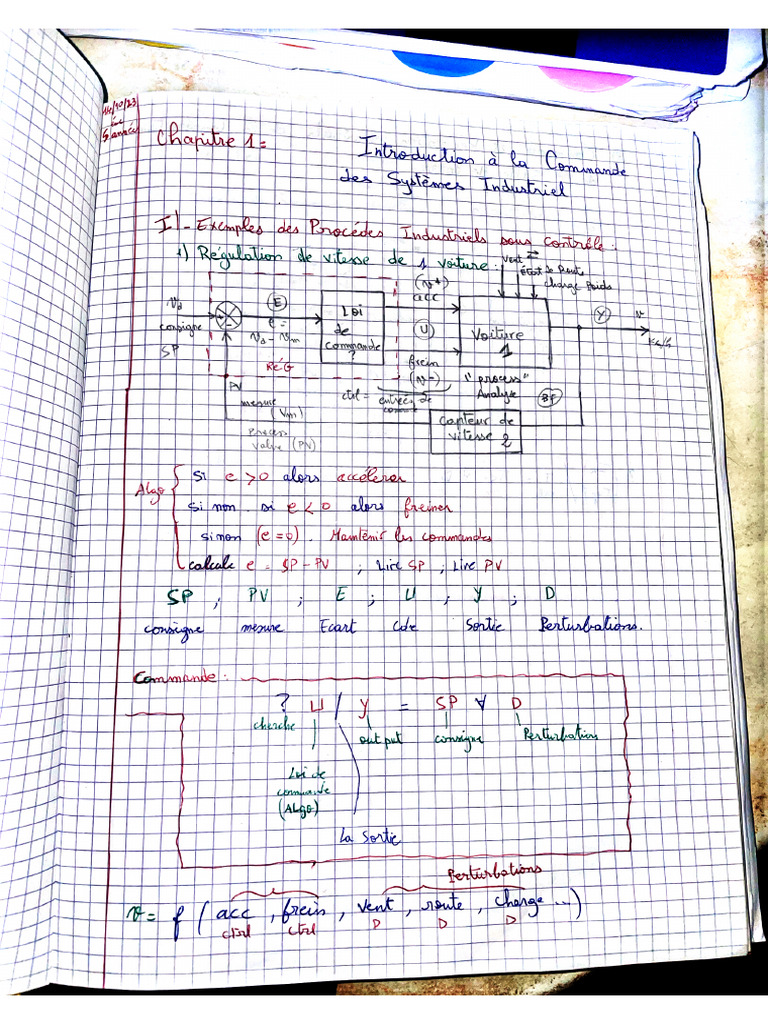 14/10/23
5 année
Chapitre 1 =
Introduction à la Commande
des Systèmes Industriel
I) - Exemples des Procédes Industriels sous contrôle :
1) Régulation de vitesse de 1 voiture :
Vent
état de Route
charge Poids
(v+)
acc
Vd
consigne
SP
+
-
E
e =
Vd - Vm
Loi
de
commande
?
RÉG
U
frein
(v-)
Voiture
1
"process"
Analyse
Y
v
Km/h
BF
PV
mesure (Vm)
Process
Value (PV)
ctrl = entrées de
capteur de
vitesse 2
Algo
si e > 0 alors accélerer
si non. si e < 0 alors freiner
sinon (e = 0). Maintenir les commandes
calcule e = SP - PV ; Lire SP ; Lire PV
SP ; PV ; E ; U ; Y ; D
consigne mesure Ecart Cde Sortie Perturbations.
Commande :
? U / Y = SP ∀ D
cherche output consigne Perturbation
Loi de
commande
(ALgo)
La Sortie
Perturbations
v = f ( acc , frein , vent , route , charge ... )
ctrl ctrl D D D